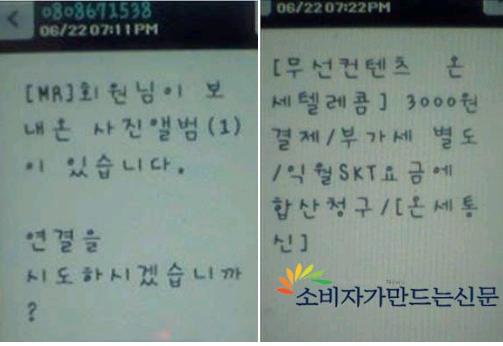 0808671538
06/22 07:11PM
[MR]회원님이 보
내온 사진앨범(1)
이 있습니다.
연결을
시도하시겠습니까
?
06/22 07:22PM
[무선컨텐츠 온
세텔레콤] 3000원
결제/부가세 별도
/익월SKT요금에
합산청구/[온세통
신]
News
소비자가만드는신문